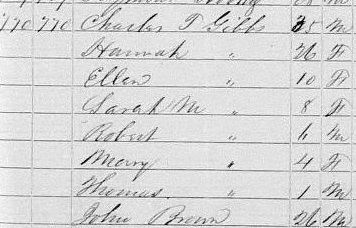 770 770 Charles T Gibbs 35 M
Hannah " 26 F
Ellen " 10 F
Sarah M " 8 F
Robert " 6 M
Mary " 4 F
Thomas " 1 M
John Brown 26 M